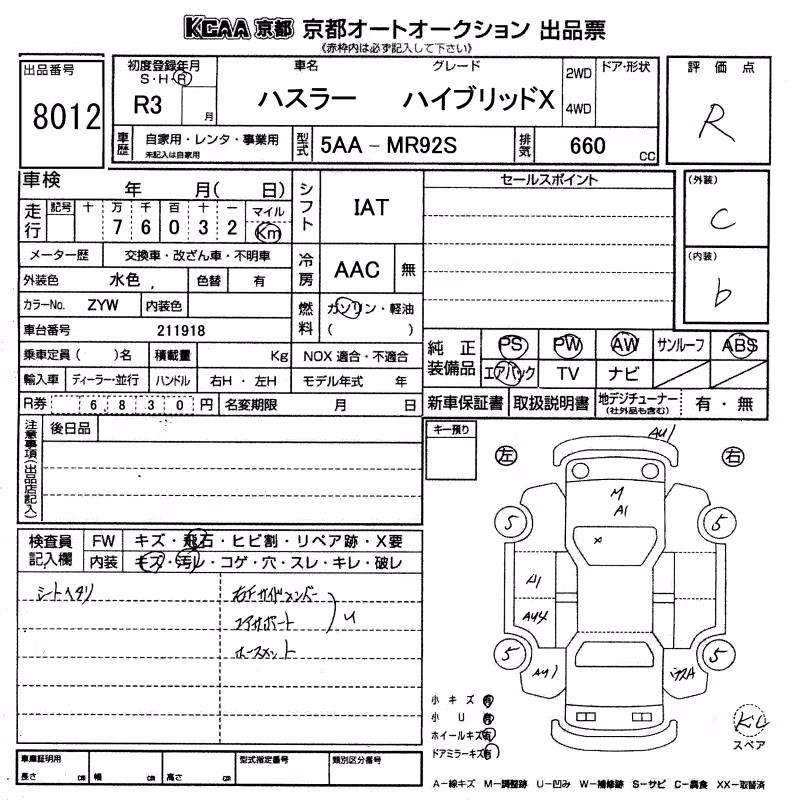 KCAA 京都 京都オートオークション 出品票
《赤枠内は必ず記入して下さい》
出品番号
8012
初度登録年月
S・H・R
R3 月
車名 グレード
ハスラー ハイブリッドX
2WD
4WD
ドア・形状
評価点
R
車歴
自家用・レンタ・事業用
未記入は自家用
型式
5AA－MR92S
排気
660 cc
車検 年 月( 日)
走行
記号 十 万 千 百 十 一 マイル
7 6 0 3 2 Km
シフト
IAT
セールスポイント
(外装)
C
(内装)
b
メーター歴 交換車・改ざん車・不明車
外装色 水色 色替 有
冷房
AAC 無
カラーNo. ZYW 内装色
燃料
ガソリン・軽油
( )
車台番号 211918
乗車定員( )名 積載量 Kg NOX 適合・不適合
輸入車 ディーラー・並行 ハンドル 右H・左H モデル年式 年
R券 6,830 円 名変期限 月 日
純正装備品
PS PW AW サンルーフ ABS
エアバック TV ナビ
新車保証書 取扱説明書 地デジチューナー
(社外品も含む)
有・無
注意事項(出品店記入)
後日品
キー預り
左 右
AU1
M
A1
×
5 5
A1
AU4
5 5
AU1
検査員記入欄
FW キズ・飛石・ヒビ割・リペア跡・X要
内装 キズ・汚レ・コゲ・穴・スレ・キレ・破レ
シートヘタリ
右Fサイドメンバー
コアサポート
U
ホースメント
小キズ 有
小U 有
ホイールキズ 有
ドアミラーキズ 有
スペア
車庫証明用
長さ cm 幅 cm 高さ cm
型式指定番号 類別区分番号
A－線キズ M－調整跡 U－凹み W－補修跡 S－サビ C－腐食 XX－取替済